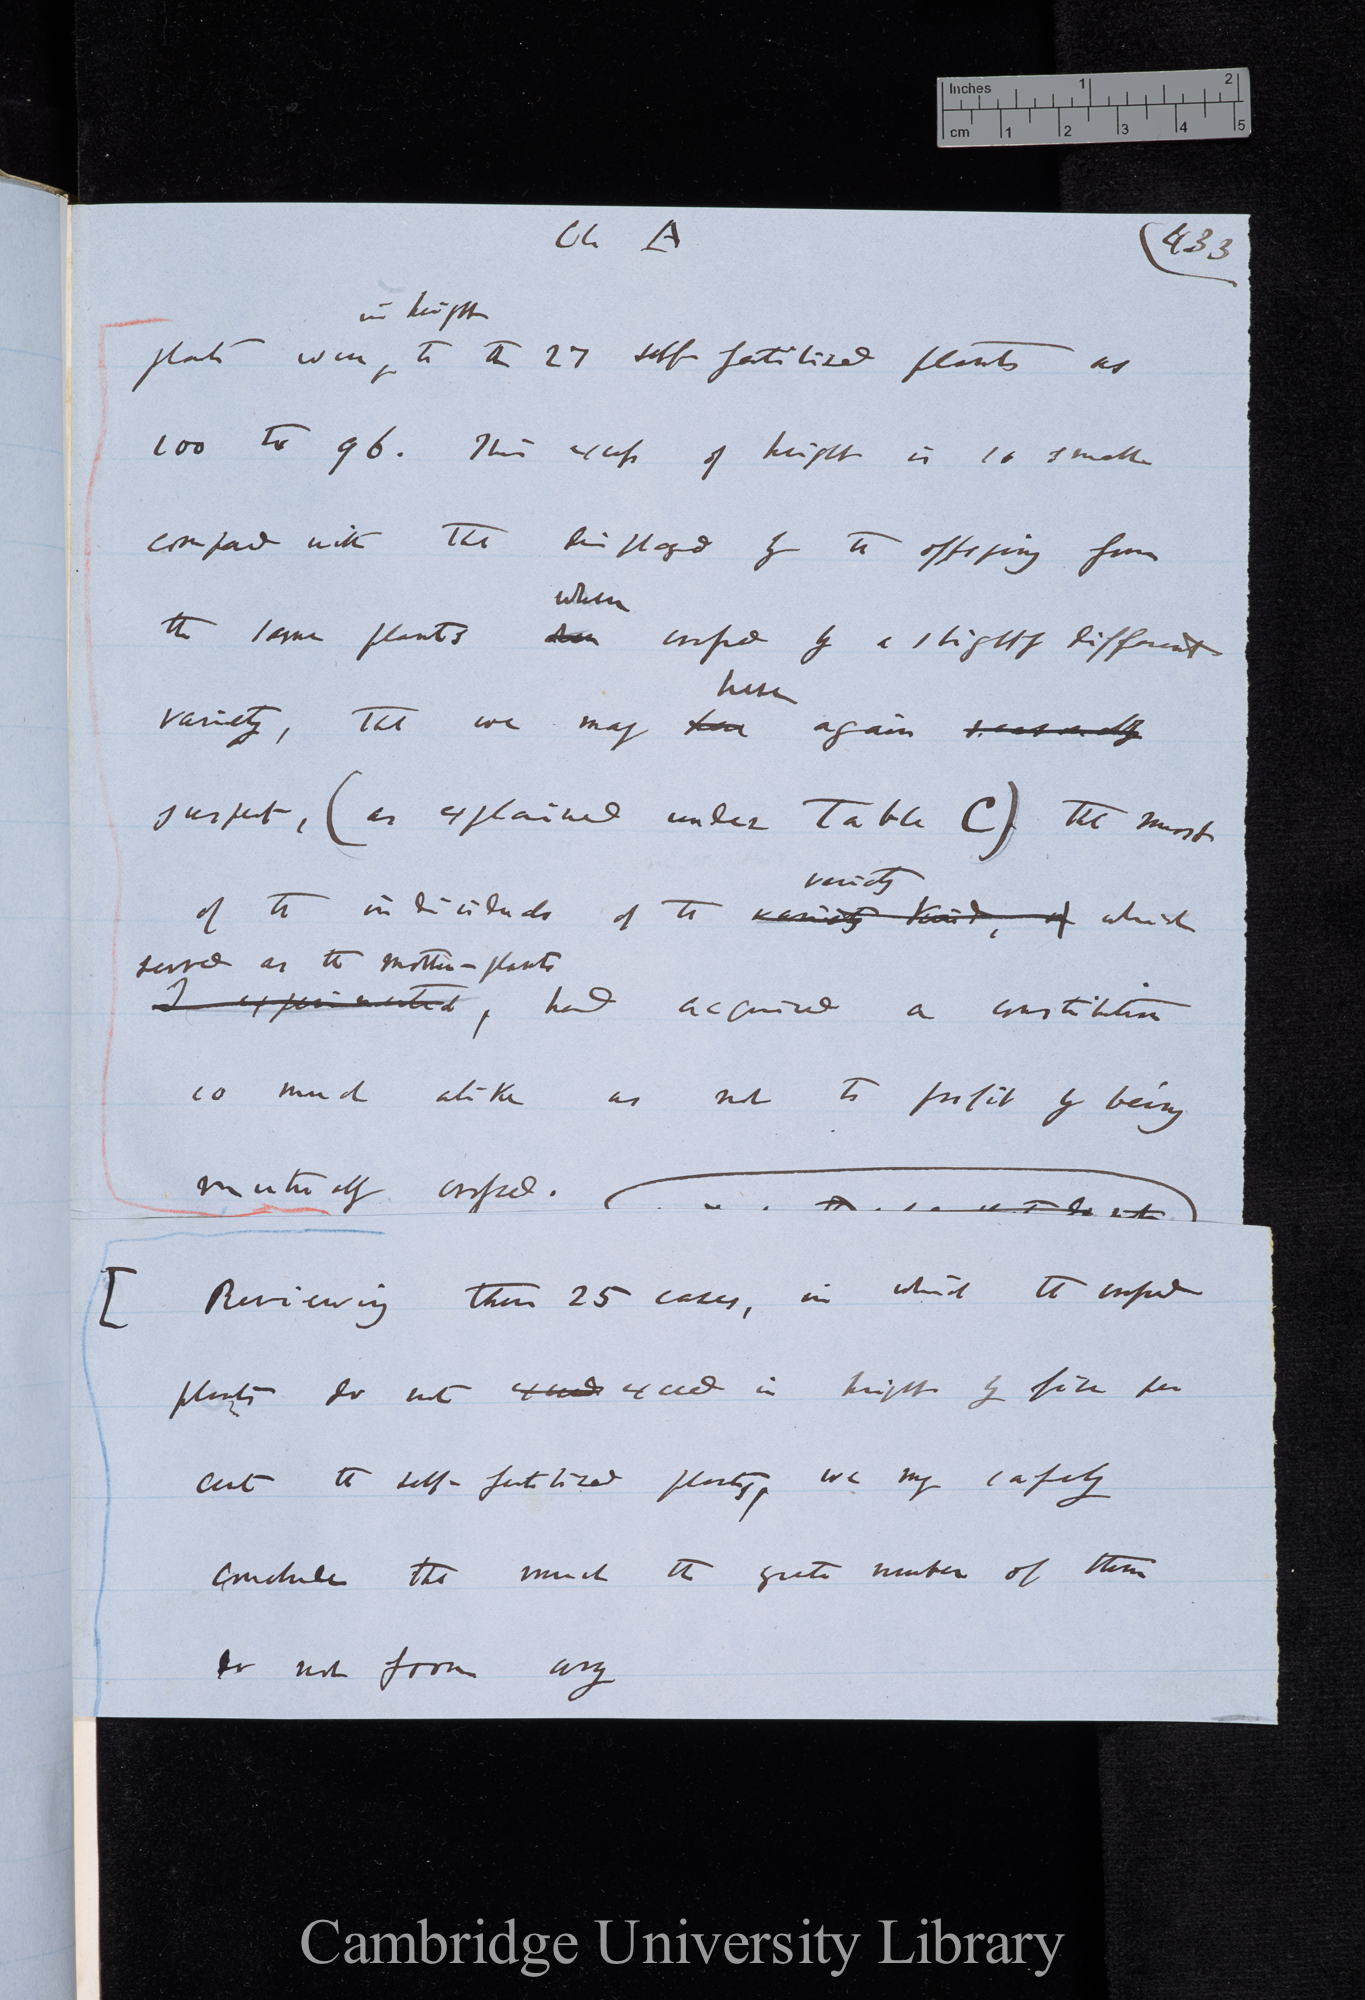 Inches 1 2
cm 1 2 3 4 5
Ch A
433
in height
plants were, to the 27 self-fertilized plants as
100 to 96. This excess of height is so small
compared with that displayed by the offspring from
when
the same plants crossed by a slightly different
here
variety, that we may again
suspect, (as explained under Table C) that most
variety
of the individuals of the variety kind, of which
served as the mother-plants
I experimented, had acquired a constitution
so much alike as not to profit by being
mutually crossed.
[ Reviewing these 25 cases, in which the crossed
plants do not exceed exceed in height by five per
cent the self-fertilized plants, we may safely
conclude that much the greater number of them
do not form any
Cambridge University Library